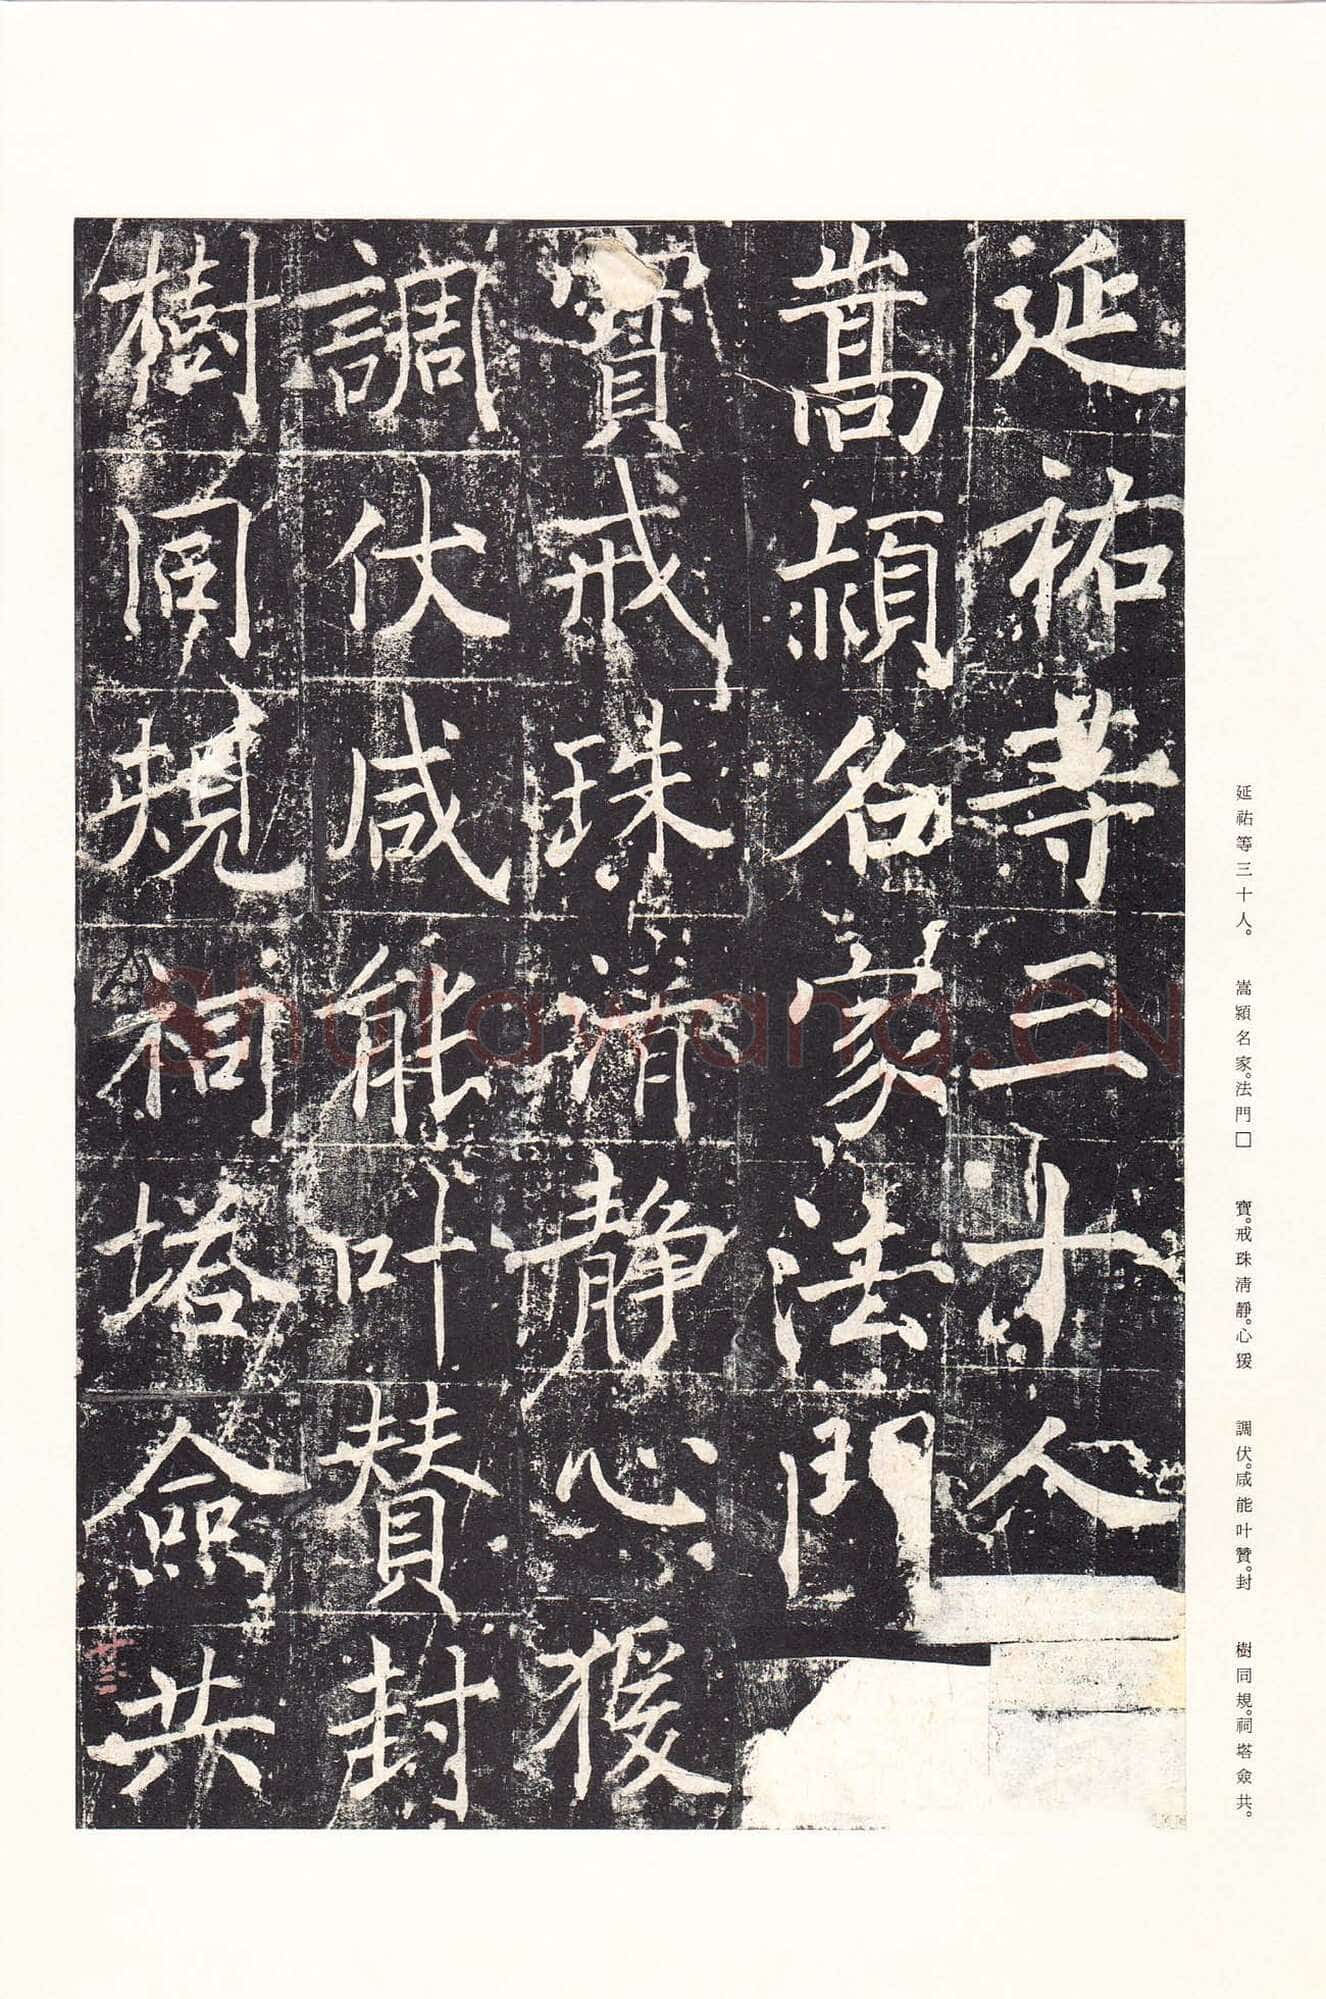 延祐等三十人
嵩潁名家法門
寶戒珠清靜心猨
調伏咸能叶贊封
樹同規祠塔僉共
廿二
延祐等三十人。 嵩潁名家。法門□ 寶。戒珠清靜。心猨 調伏。咸能叶贊。封 樹同規。祠塔僉共。
Shufawang.CN